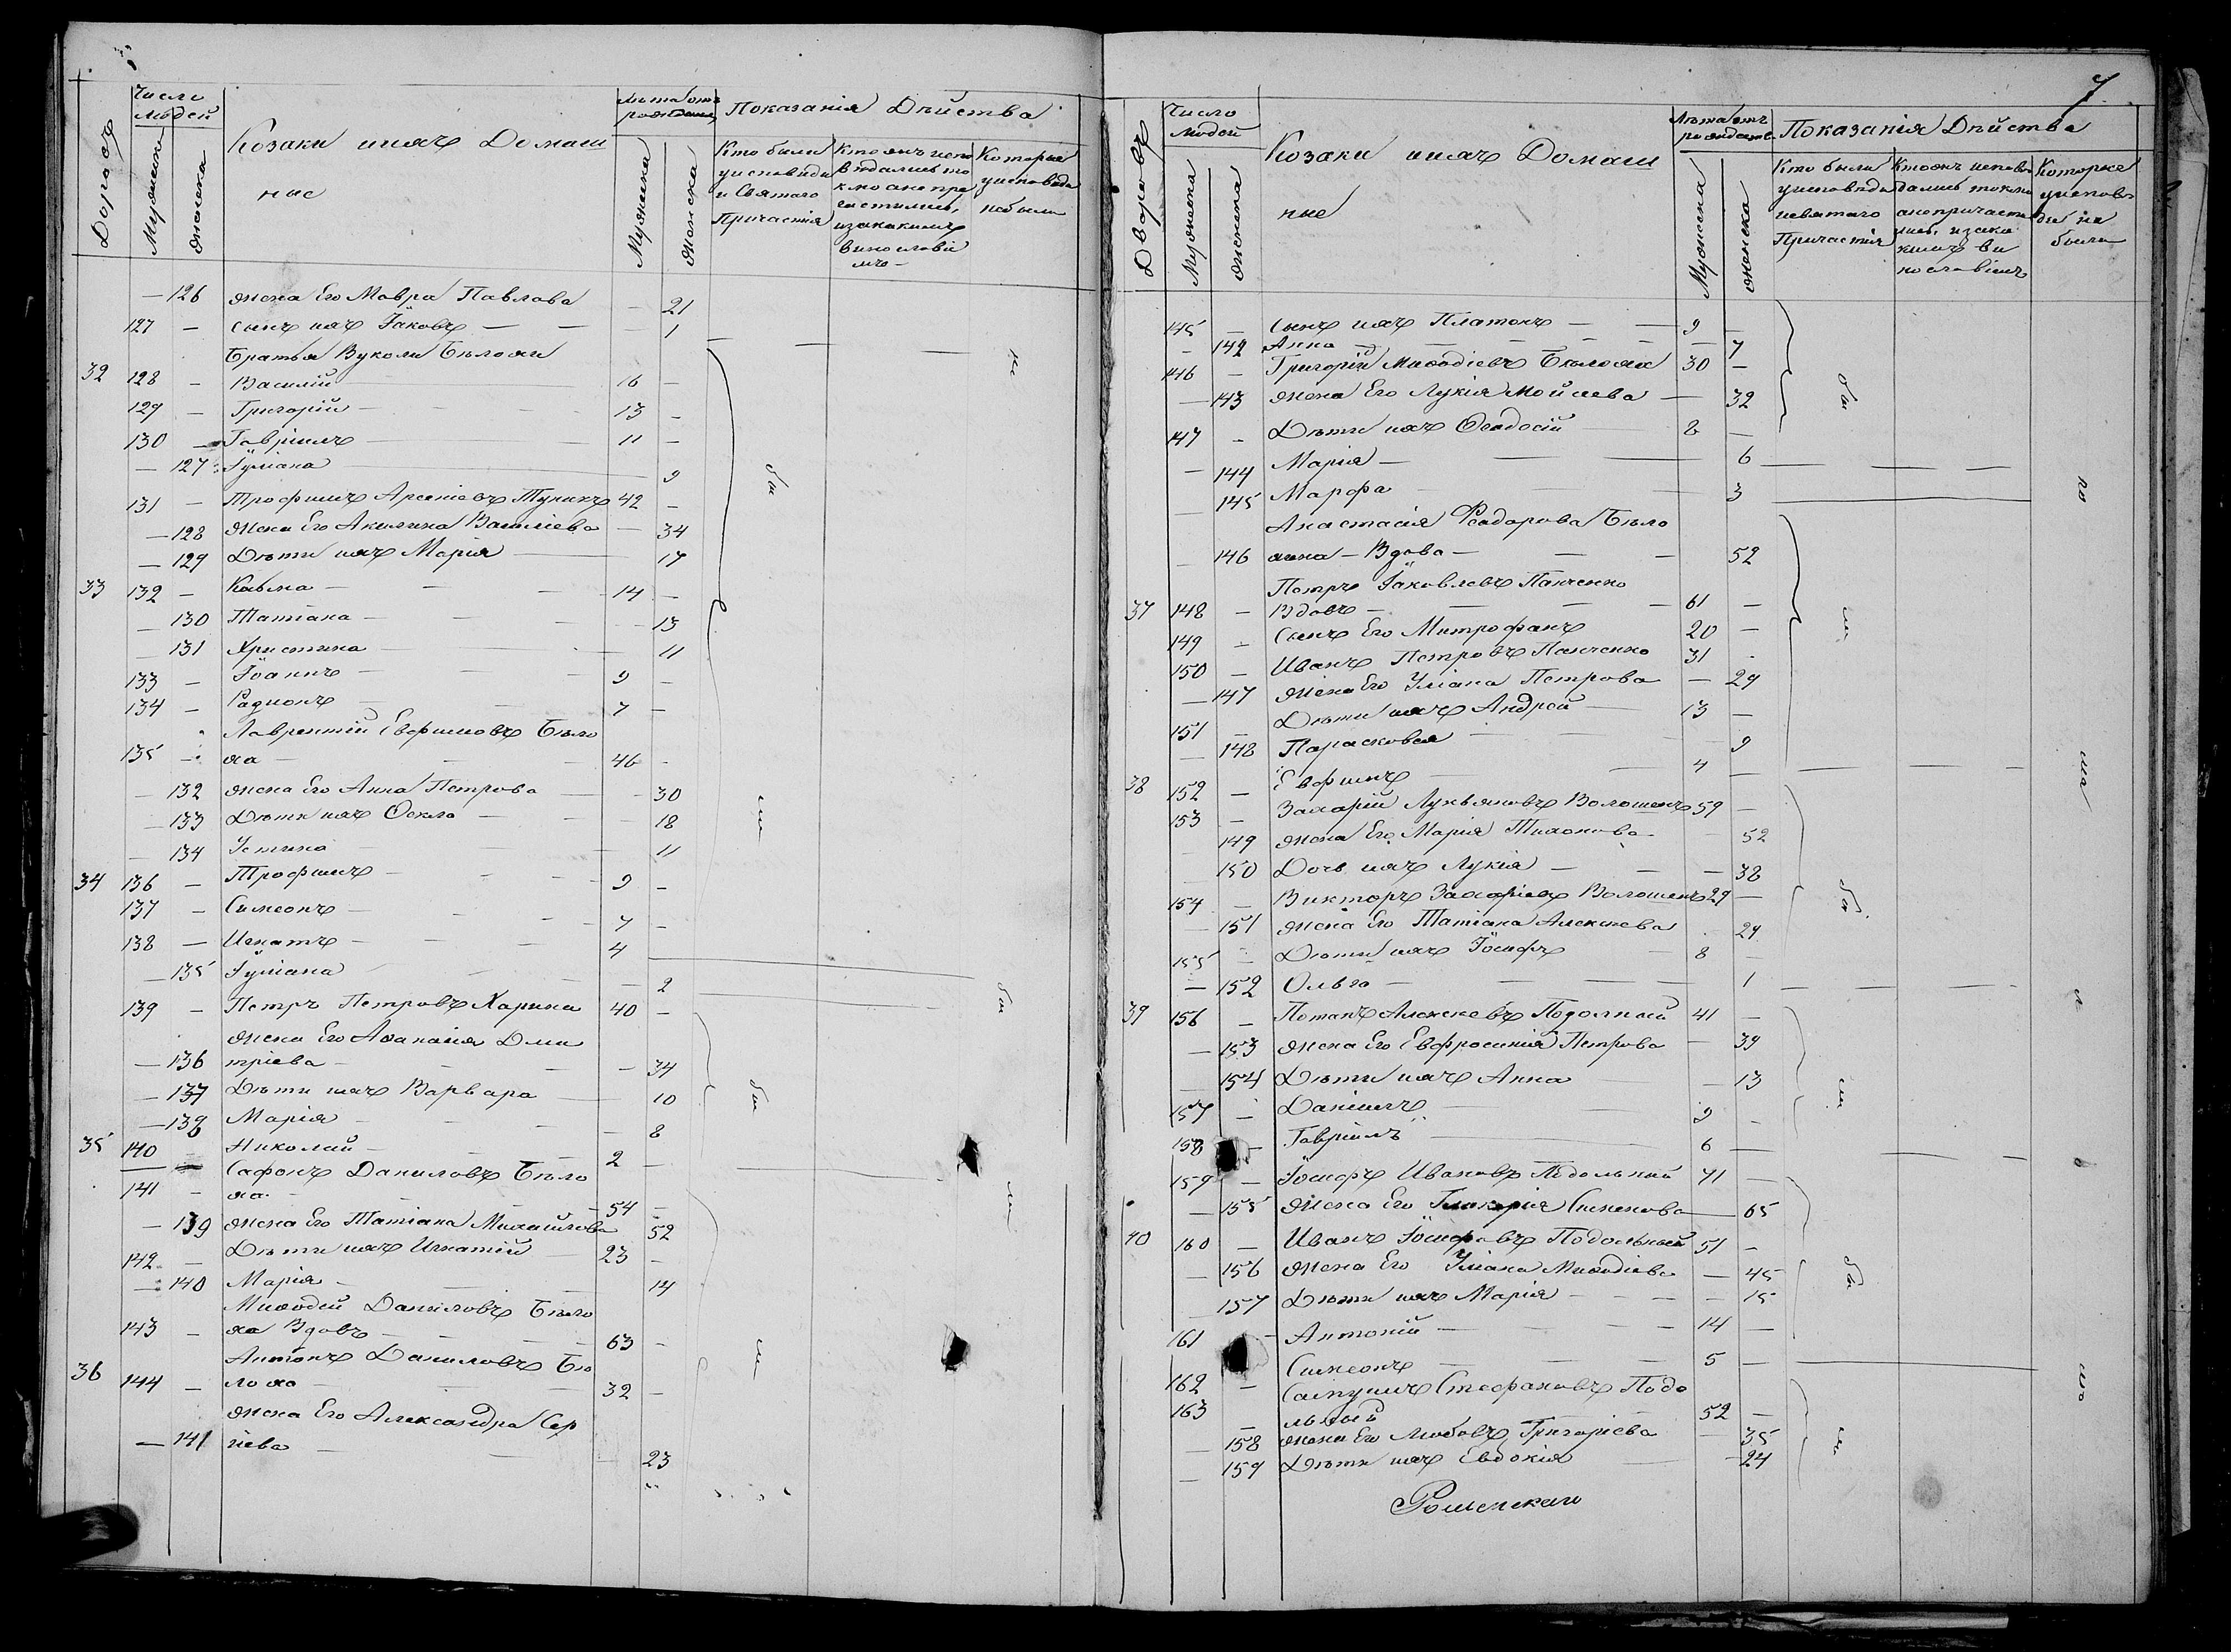 Число
людей
Козаки ихъ Домаш
ные
Лѣта отъ
рожденія
Показанія Дѣйства
Мужеска
женска
Мужеска
женска
Кто были
у исповѣди
и Святаго
Причастія
не были
— 126 жена Его Мавра Павлова — 21
127 — сынъ ихъ Іаковъ — — 1
Братья Вуколи Бѣложи
32 128 — Василій — 16 —
129 — Григорій — 13 —
130 — Гавріилъ — 11 —
— 127 Іуліана — 9
131 — Трофимъ Арсеніевъ 42 —
— 128 жена Его Акилина Василіева — 34
— 129 Дѣти ихъ Марія — 17
33 132 — Козма — 14 —
— 130 Татіана — 13
— 131 Христина — 11
133 — Іоаннъ — 9 —
134 — Радионъ — 7 —
Лаврентій Евфимовъ Бѣло
135 — жа — 46 —
— 132 жена Его Анна Петрова — 30
— 133 Дѣти ихъ Ѳекла — 18
— 134 Устина — 11
34 136 — Трофимъ — 9 —
137 — Симеонъ — 7 —
138 — Игнатъ — 4
— 135 Іуліана — 2
139 — Петръ Петровъ Харина 40 —
жена Его Аѳанасія Дми
— 136 тріева — 34
— 137 Дѣти ихъ Варвара — 10
— 138 Марія — 8
35 140 — Николай — 2 —
Сафонъ Даниловъ Бѣло
141 — жа — 54 —
— 139 жена Его Татіана Михайлова 52
142 — Дѣти ихъ Игнатій 23 —
— 140 Марія — 14
Миѳодій Даниловъ Бѣло
143 — жа Вдовъ — 63 —
Антонъ Даниловъ Бѣ
36 144 — ложа — 32 —
жена Его Александра Сер
— 141 гіева — 23
7
Дворовъ
Число
людей
Козаки ихъ Домаш
ные
Лѣта отъ
Показанія Дѣйства
Мужеска
женска
Мужеска
женска
Кто были
у исповѣди
Причастія
Которые
у исповѣ
ди не
были
145 — Сынъ ихъ Платонъ — — 9 —
— 142 Анна — 7
146 — Григорій Миѳодіевъ Бѣложа 30 —
— 143 жена Его Лукія Мойсеева — 32
147 — Дѣти ихъ Ѳеодосій — 8 —
— 144 Марія — 6
— 145 Марфа — 3
Анастасія Феодорова Бѣло
— 146 жина — Вдова — 52
Петръ Іаковлевъ Панченко
37 148 — Вдовъ — 61 —
149 — Сынъ Его Митрофанъ 20 —
150 — Иванъ Петровъ Панченко 31 —
— 147 жена Его Уліана Петрова — 29
151 — Дѣти ихъ Андрей — 13 —
— 148 Парасковея — 9
38 152 — Евфимъ — 4 —
153 — Захарій Лукьяновъ Волошенъ 59 —
— 149 жена Его Марія Тихонова — 52
— 150 Дочь ихъ Лукія — 38
154 — Викторъ Захаріевъ Волошенъ 29 —
— 151 жена Его Татіана Алексѣева 29
155 — Дѣти ихъ Іосифъ — 8 —
— 152 Ольга — 1
39 156 — Потапъ Алексѣевъ Подолный 41 —
— 153 жена Его Евфросинія Петрова — 39
— 154 Дѣти ихъ Анна — 13
157 — Даніилъ — 9 —
158 — Гавріилъ — 6 —
159 — Іосифъ Ивановъ Подольный 71 —
— 155 жена Его Гликерія Сименова — 65
40 160 — Иванъ Іосифовъ Подольный 51 —
— 156 жена Его Уліана Миѳодіева — 45
— 157 Дѣти ихъ Марія — 15
161 — Антоній — 14 —
162 — Симеонъ — 5 —
Стефановъ Подо
163 — льный — 52 —
— 158 жена Его Любовъ Григоріева — 35
— 159 Дѣти ихъ Евдокія — 24